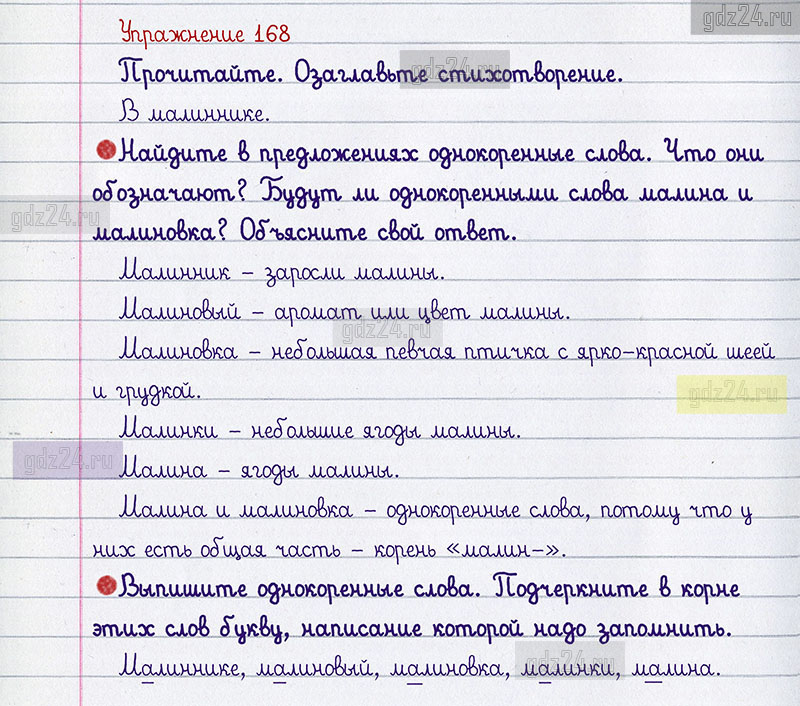 gdz24.ru
Упражнение 168
Прочитайте. Озаглавьте стихотворение.
gdz24.ru
В малиннике.
Найдите в предложениях однокоренные слова. Что они
обозначают? Будут ли однокоренными слова малина и
gdz24.ru
малиновка? Объясните свой ответ.
Малинник – заросли малины.
Малиновый – аромат или цвет малины.
gdz24.ru
Малиновка – небольшая певчая птичка с ярко-красной шеей
и грудкой.
gdz24.ru
Малинки – небольшие ягоды малины.
gdz24.ru
Малина – ягоды малины.
Малина и малиновка – однокоренные слова, потому что у
них есть общая часть – корень «малин-».
Выпишите однокоренные слова. Подчеркните в корне
этих слов букву, написание которой надо запомнить.
gdz24.ru
Малиннике, малиновый, малиновка, малинки, малина.